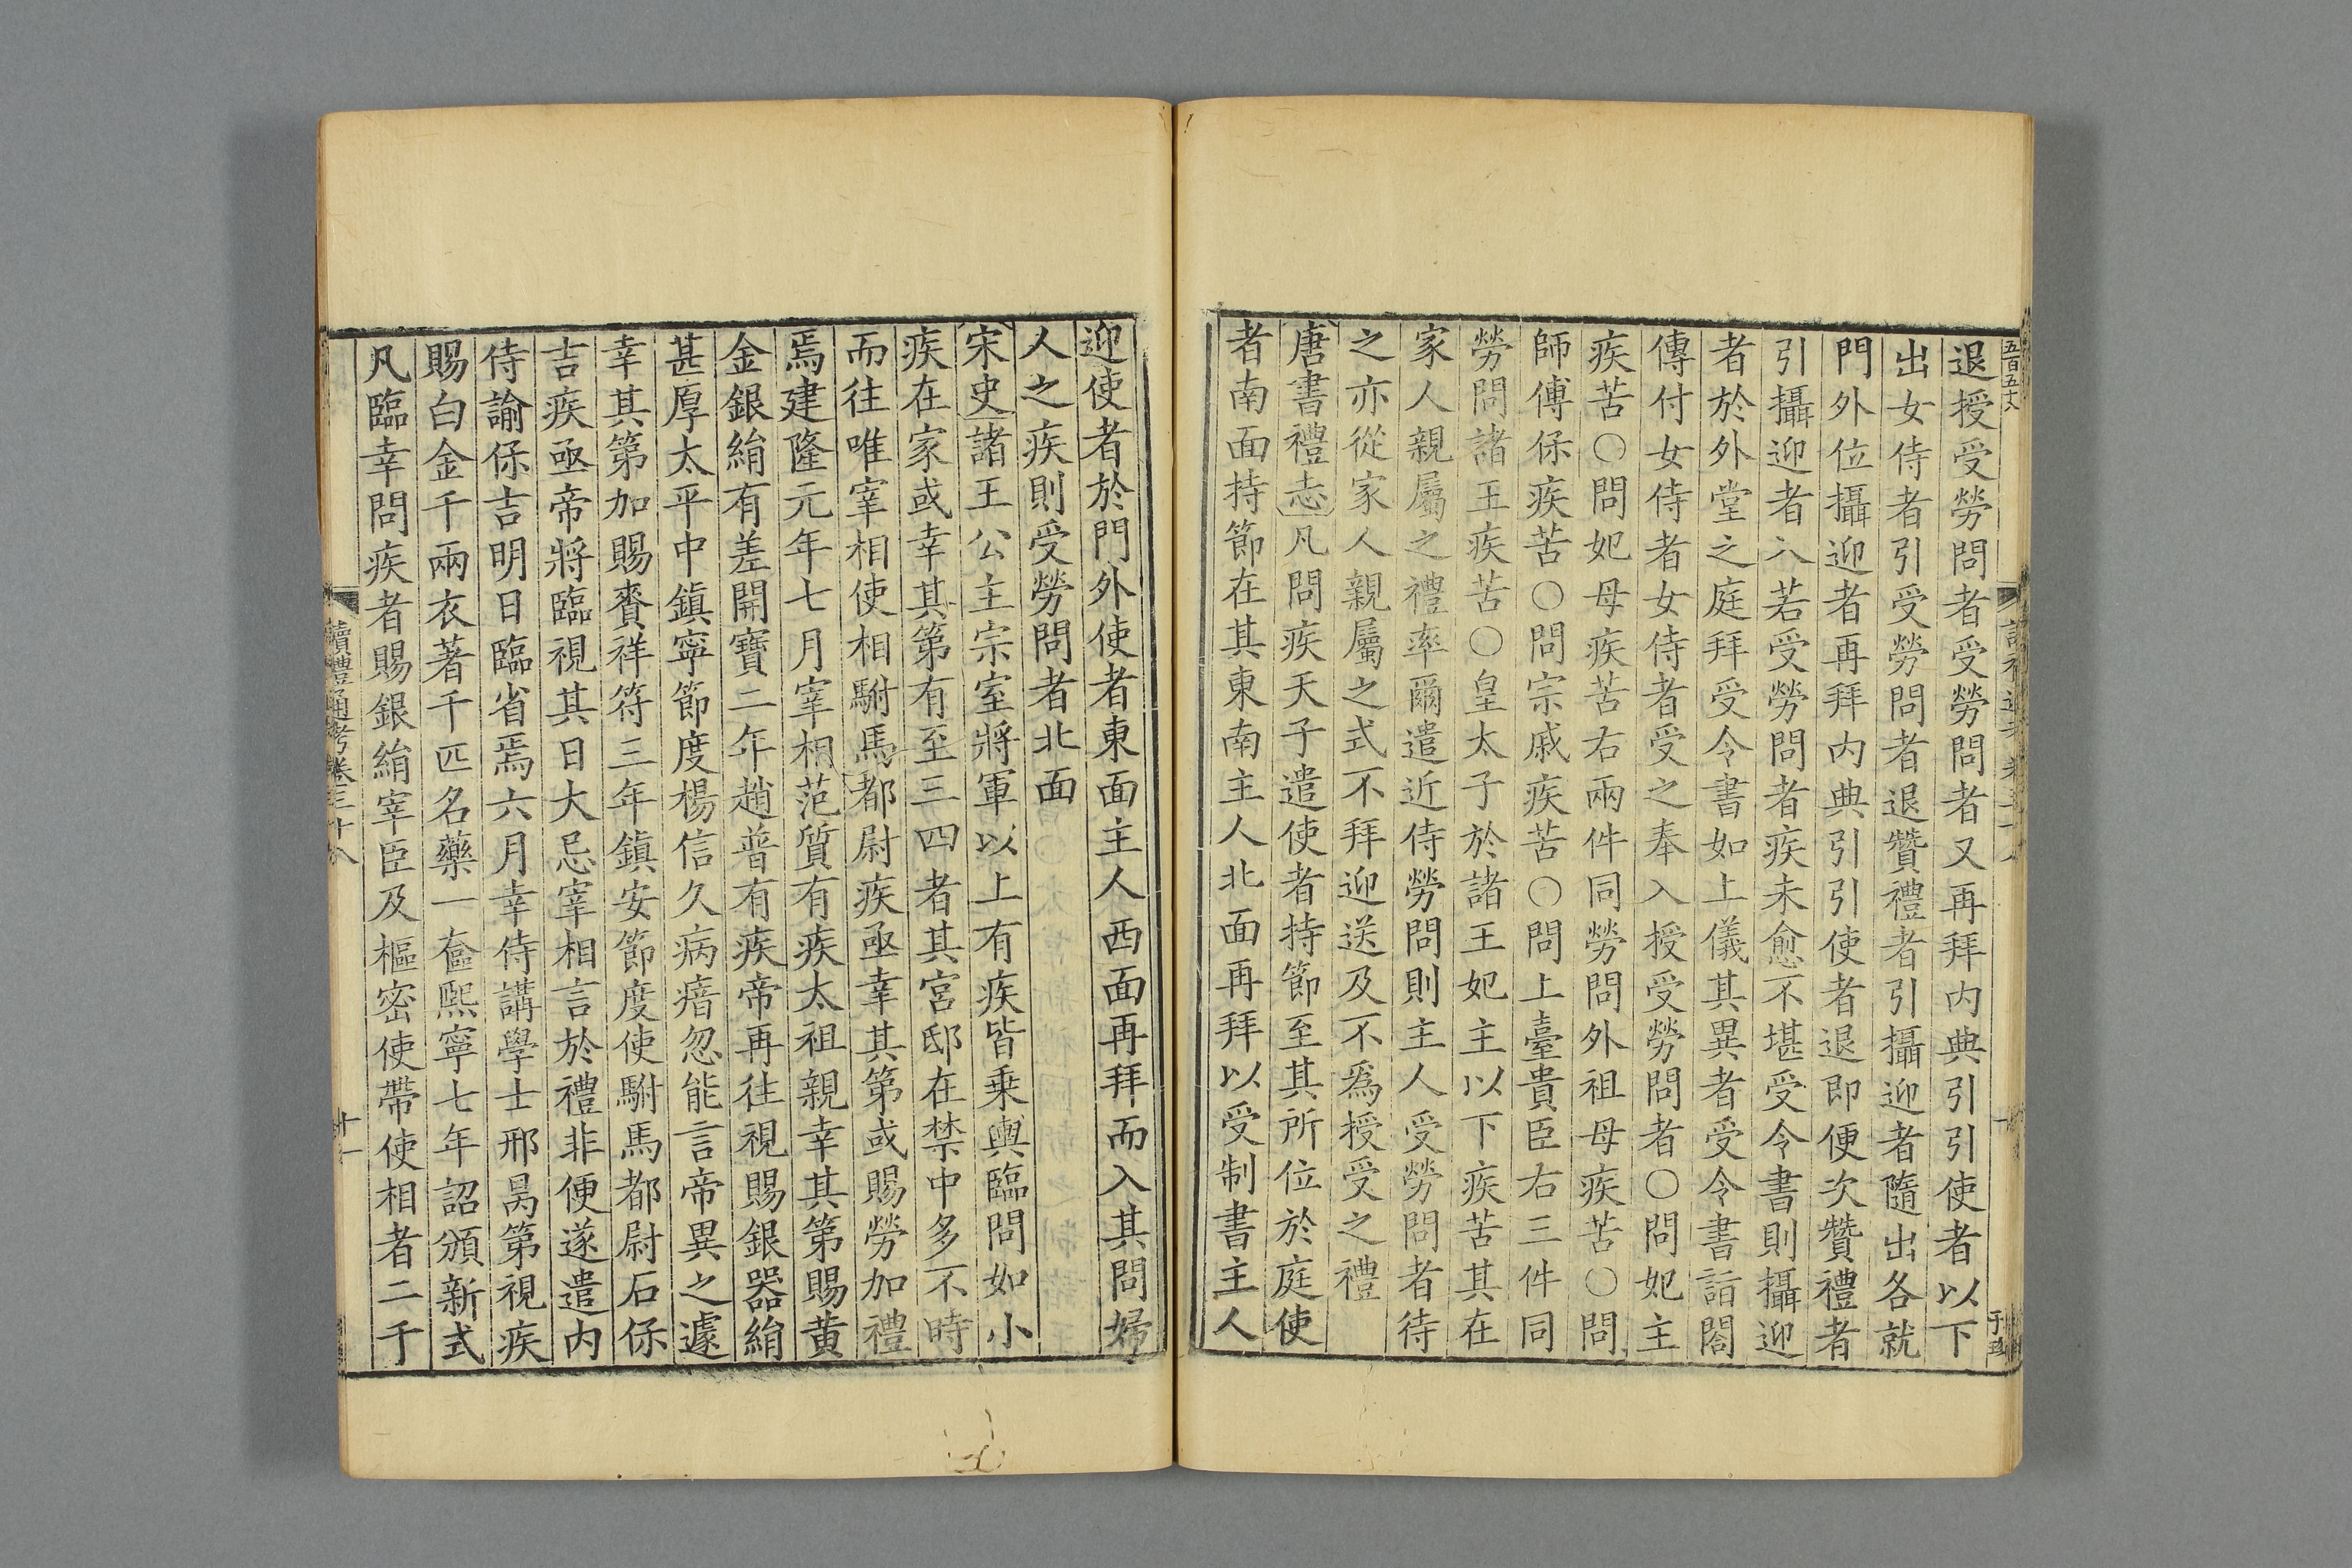 五百五十六
退授受勞問者受勞問者又再拜內典引引使者以下
出女侍者引受勞問者退贊禮者引攝迎者隨出各就
門外位攝迎者再拜內典引引使者退即便次贊禮者
引攝迎者入若受勞問者疾未愈不堪受令書則攝迎
者於外堂之庭拜受令書如上儀其異者受令書詣閤
傳付女侍者女侍者受之奉入授受勞問者○問妃主
疾苦○問妃母疾苦右兩件同勞問外祖母疾苦○問
師傅保疾苦○問宗戚疾苦○問上臺貴臣右三件同
勞問諸王疾苦○皇太子於諸王妃主以下疾苦其在
家人親屬之禮率爾遣近侍勞問則主人受勞問者待
之亦從家人親屬之式不拜迎送及不爲授受之禮
唐書禮志凡問疾天子遣使者持節至其所位於庭使
者南面持節在其東南主人北面再拜以受制書主人
迎使者於門外使者東面主人西面再拜而入其問婦
人之疾則受勞問者北面
宋史諸王公主宗室將軍以上有疾皆乘輿臨問如小
疾在家或幸其第有至三四者其宮邸在禁中多不時
而往唯宰相使相駙馬都尉疾亟幸其第或賜勞加禮
焉建隆元年七月宰相范質有疾太祖親幸其第賜黃
金銀絹有差開寶二年趙普有疾帝再往視賜銀器絹
甚厚太平中鎮寧節度楊信久病瘖忽能言帝異之遽
幸其第加賜賚祥符三年鎮安節度使駙馬都尉石保
吉疾亟帝將臨視其日大忌宰相言於禮非便遂遣內
侍諭保吉明日臨省焉六月幸侍講學士邢昺第視疾
賜白金千兩衣著千匹名藥一奩熙寧七年詔頒新式
凡臨幸問疾者賜銀絹宰臣及樞密使帶使相者二千
讀禮通考卷三十八
十一